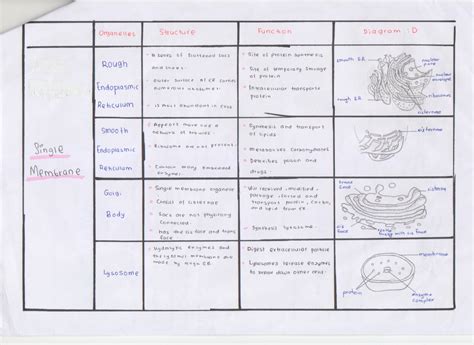 Organelles
Structure
Function
Diagram :D
Single
Membrane
Rough
Endoplasmic
Reticulum
A series of flattened sacs
and tubes.
Outer surface of ER carries
numerous ribosomes.
Site of protein synthesis
Site of temporary storage
of protein
Intracellular transports
protein
smooth ER
nuclear
pore
nuclear
envelope
rough ER
cisternae
Smooth
Endoplasmic
Reticulum
Appears more like a
network of
Ribosome are not present.
Contain many
enzymes
Synthesis and transport
of lipids
Metabolises carbohydrates
Detoxifies poison and
drugs
cisternae
Golgi
Body
Single membrane organelle
of cisternae
Sacs are not physically
connected.
Has the cis face and trans
face
received, modified,
package, stored and
transport protein, carbo,
and lipid from ER
Synthesis lysosome.
cisternae
cis
face
face
Lysosome
Hydrolytic enzymes and
membrane are
made by rough ER.
Digest extracellular particle
Lysosomes release enzymes
to break down other cells.
membrane
protein
enzyme
complex